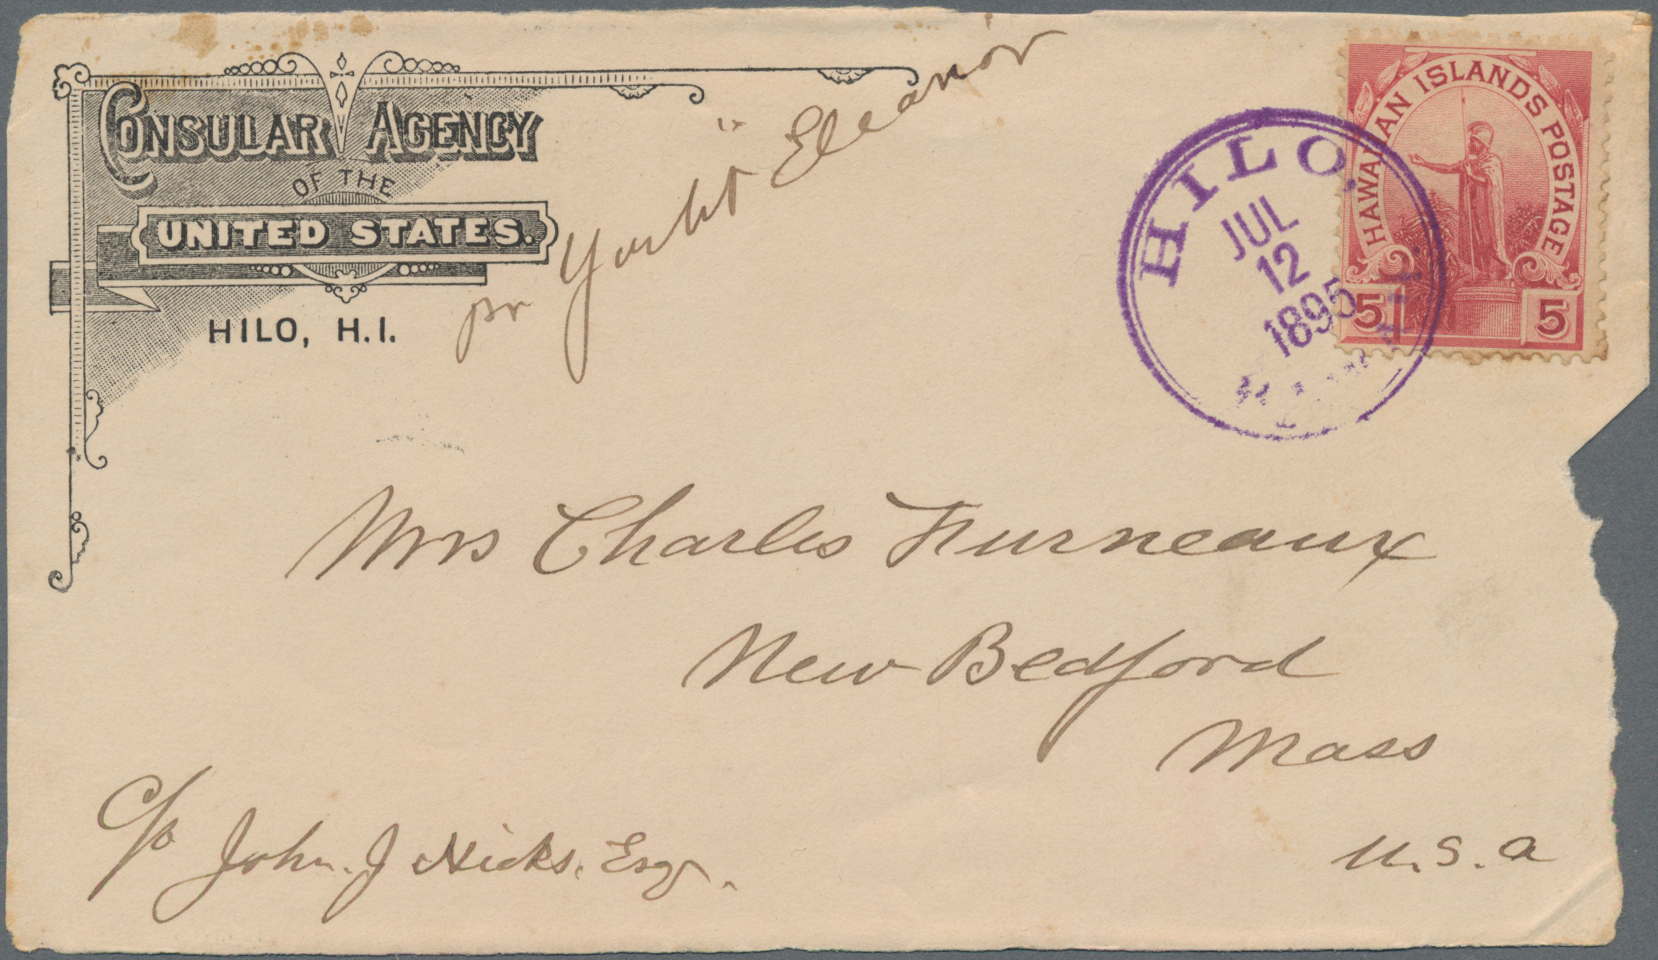 CONSULAR AGENCY
OF THE
UNITED STATES.
HILO, H.I.
pr Yacht "Eleanor
HILO,
JUL
12
1895
HAWAII
HAWAIIAN ISLANDS POSTAGE
5 5
Mrs Charles Furneaux
New Bedford
Mass
U.S.A
c/o John. J Hicks. Esq.